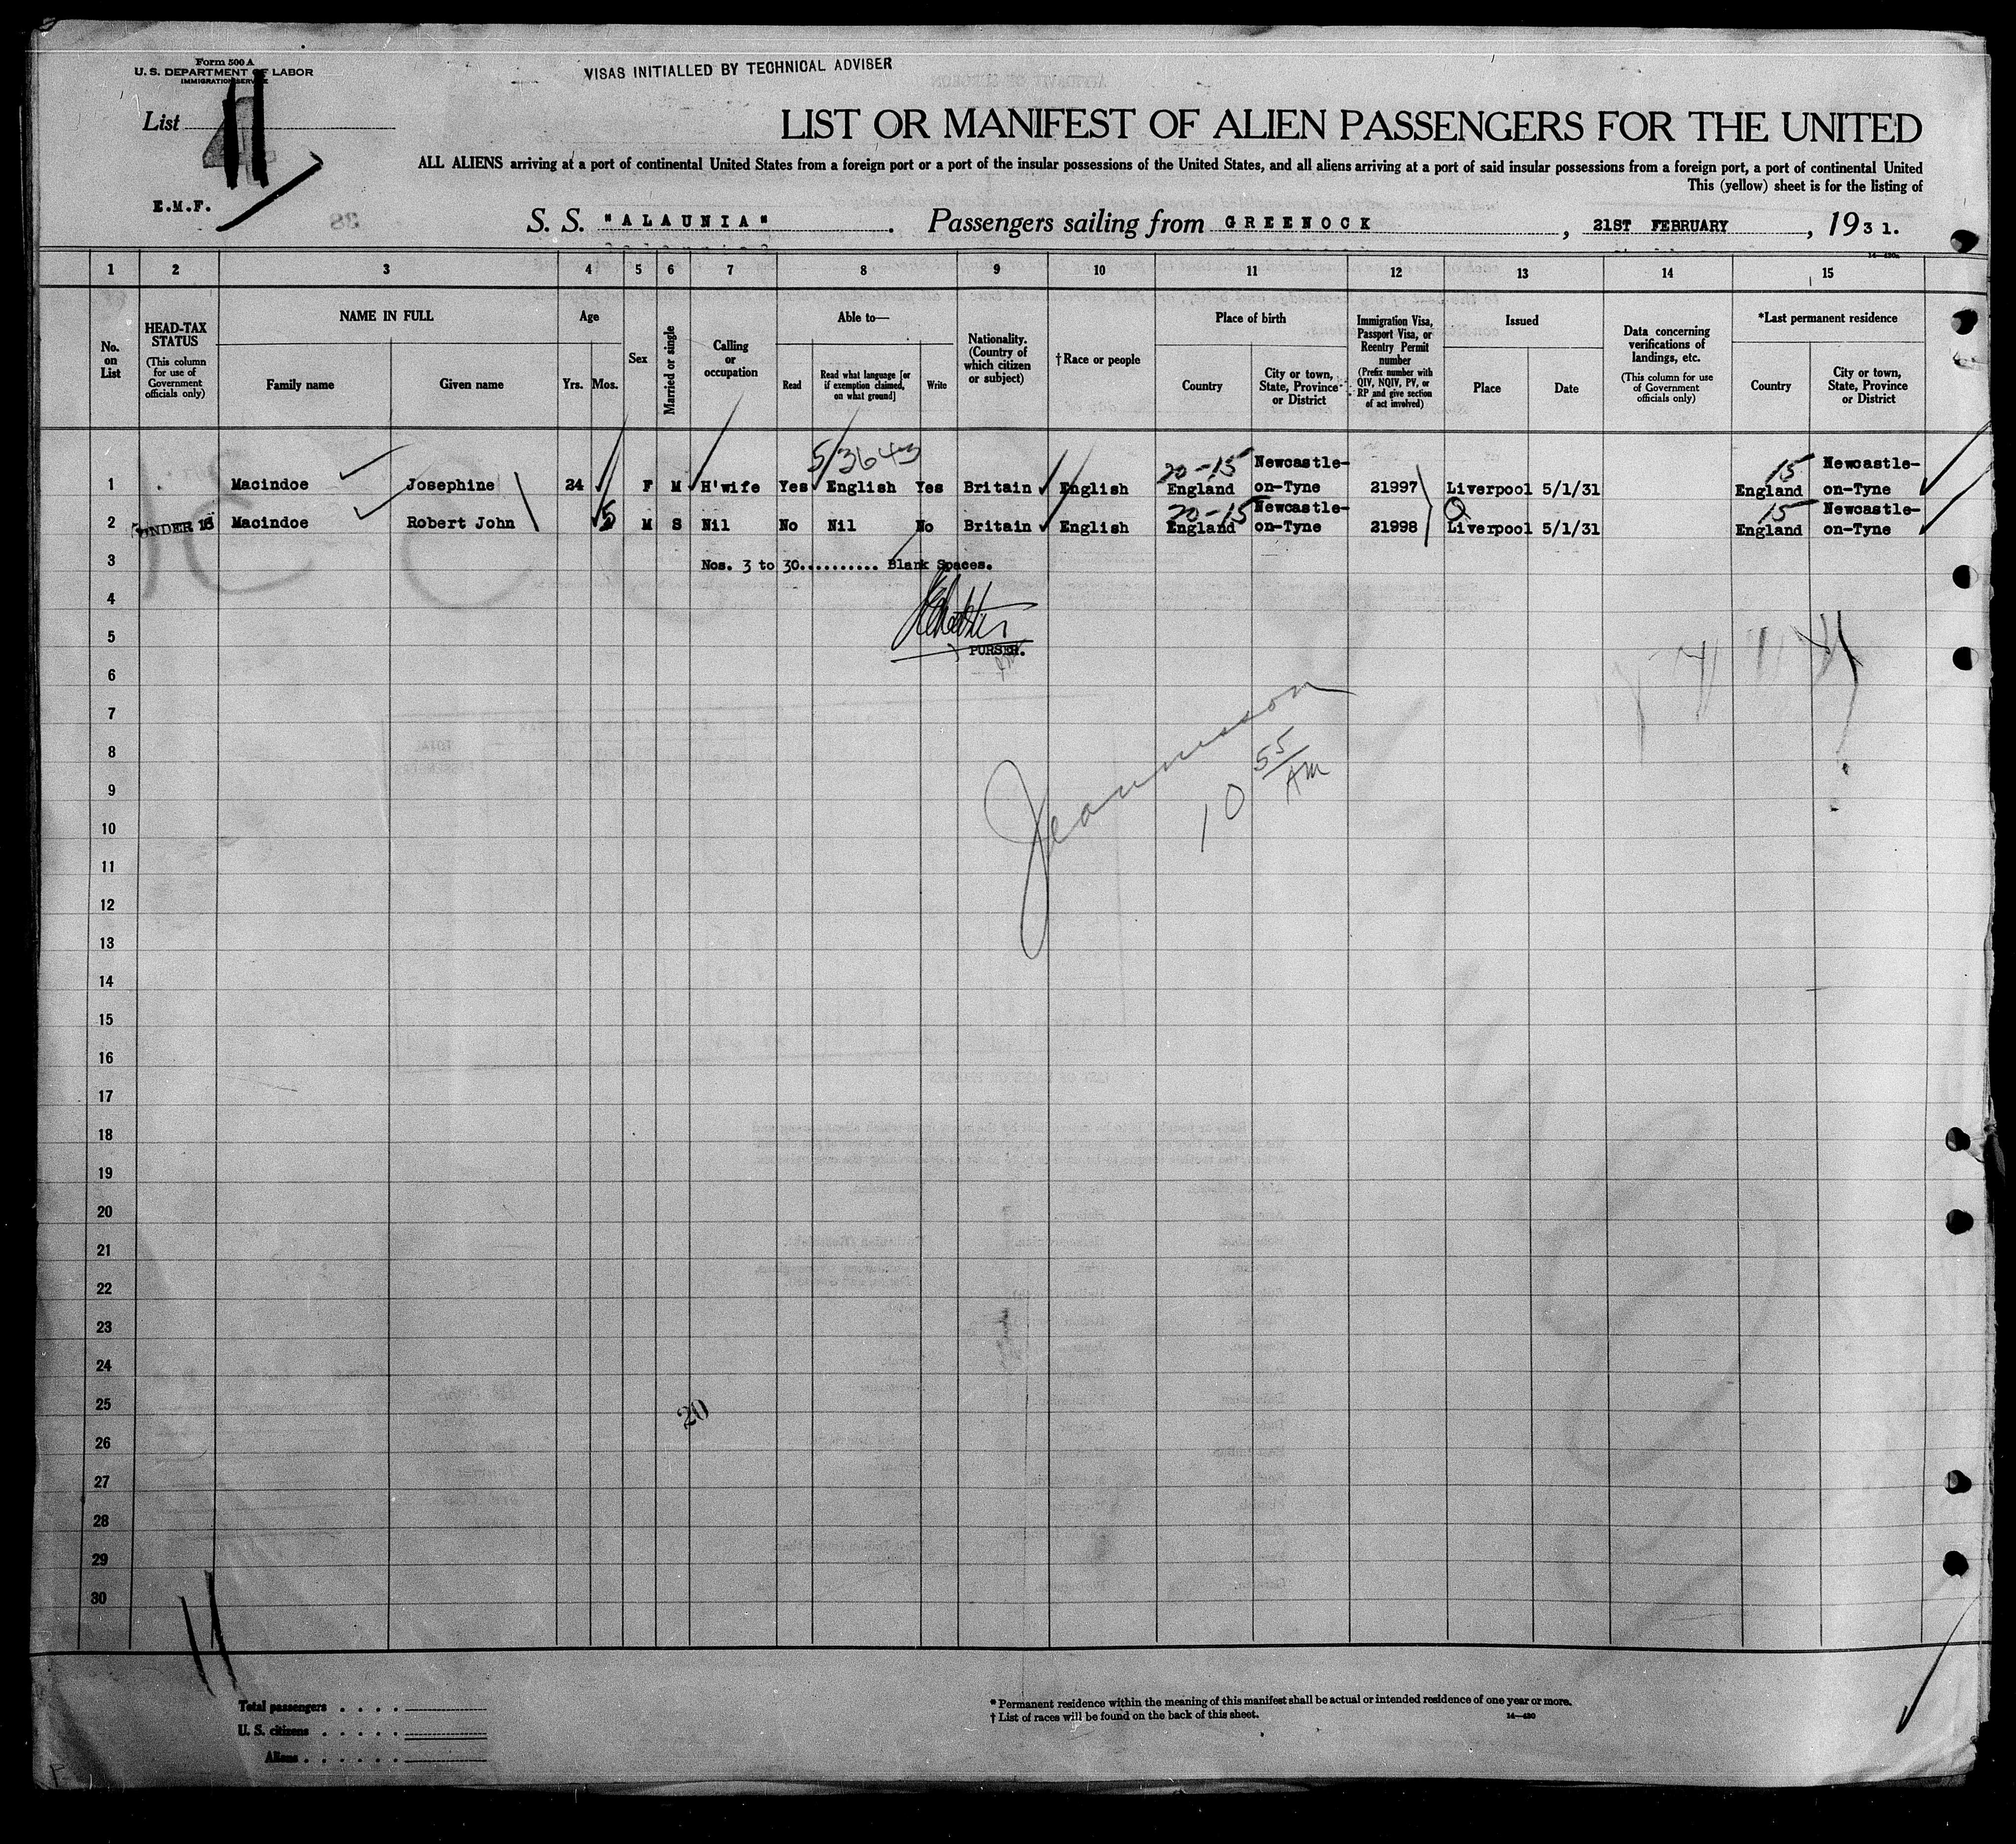 Form 500 A
U. S. DEPARTMENT OF LABOR
IMMIGRATION SERVICE
VISAS INITIALLED BY TECHNICAL ADVISER
List
E.M.F.
LIST OR MANIFEST OF ALIEN PASSENGERS FOR THE UNITED
ALL ALIENS arriving at a port of continental United States from a foreign port or a port of the insular possessions of the United States, and all aliens arriving at a port of said insular possessions from a foreign port, a port of continental United
This (yellow) sheet is for the listing of
S. S. "ALAUNIA". Passengers sailing from GREENOCK, 21ST FEBRUARY, 1931.
1 2 3 4 5 6 7 8 9 10 11 12 13 14 15
No. on List
HEAD-TAX STATUS
(This column for use of Government officials only)
NAME IN FULL
Family name Given name
Age
Yrs. Mos.
Sex
Married or single
Calling or occupation
Able to—
Read
Read what language [or if exemption claimed, on what ground]
Write
Nationality. (Country of which citizen or subject)
†Race or people
Place of birth
Country
City or town, State, Province or District
Immigration Visa, Passport Visa, or Reentry Permit number
(Prefix number with QIV, NQIV, PV, or RP and give section of act involved)
Issued
Place Date
Data concerning verifications of landings, etc.
(This column for use of Government officials only)
*Last permanent residence
Country
City or town, State, Province or District
5/3643
20-15 Newcastle- 15 Newcastle-
1 Macindoe Josephine 24 F M H'wife Yes English Yes Britain English England on-Tyne 21997 Liverpool 5/1/31 England on-Tyne
20-15 Newcastle- 15 Newcastle-
2 UNDER 16 Macindoe Robert John 5 M S Nil No Nil No Britain English England on-Tyne 21998 Liverpool 5/1/31 England on-Tyne
3 Nos. 3 to 30.......... Blank Spaces.
4
5
PURSER.
6
7
8
9
10 55 AM
10
11
12
13
14
15
16
17
18
19
20
21
22
23
24
25
20
26
27
28
29
30
Total passengers . . . .
U. S. citizens . . . . .
Aliens . . . . . .
* Permanent residence within the meaning of this manifest shall be actual or intended residence of one year or more.
† List of races will be found on the back of this sheet.
14—430